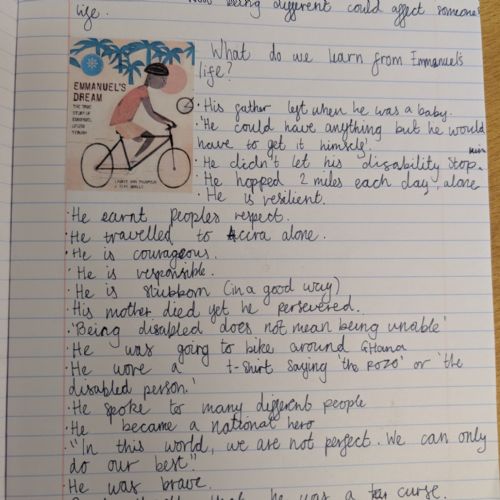 being different could affect someone's
life.
What do we learn from Emmanuel's
life?
EMMANUEL'S
DREAM
THE TRUE
STORY OF
EMMANUEL
OFOSU
YEBOAH
LAURIE ANN THOMPSON
& SEAN QUALLS
· His father left when he was a baby.
· 'He could have anything but he would
have to get it himself'.
· He didn't let his disability stop him.
· He hopped 2 miles each day, alone
· He is resilient.
· He earnt peoples respect.
· He travelled to Accra alone.
· He is courageous.
· He is responsible.
· He is stubborn (in a good way)
· His mother died yet he persevered.
· 'Being disabled does not mean being unable'
· He was going to bike around Ghana
· He wore a t-shirt saying 'the POZO' or 'the
disabled person.'
· He spoke to many different people
· He became a national hero
· "In this world, we are not perfect. We can only
do our best."
· He was brave.
he was a curse.